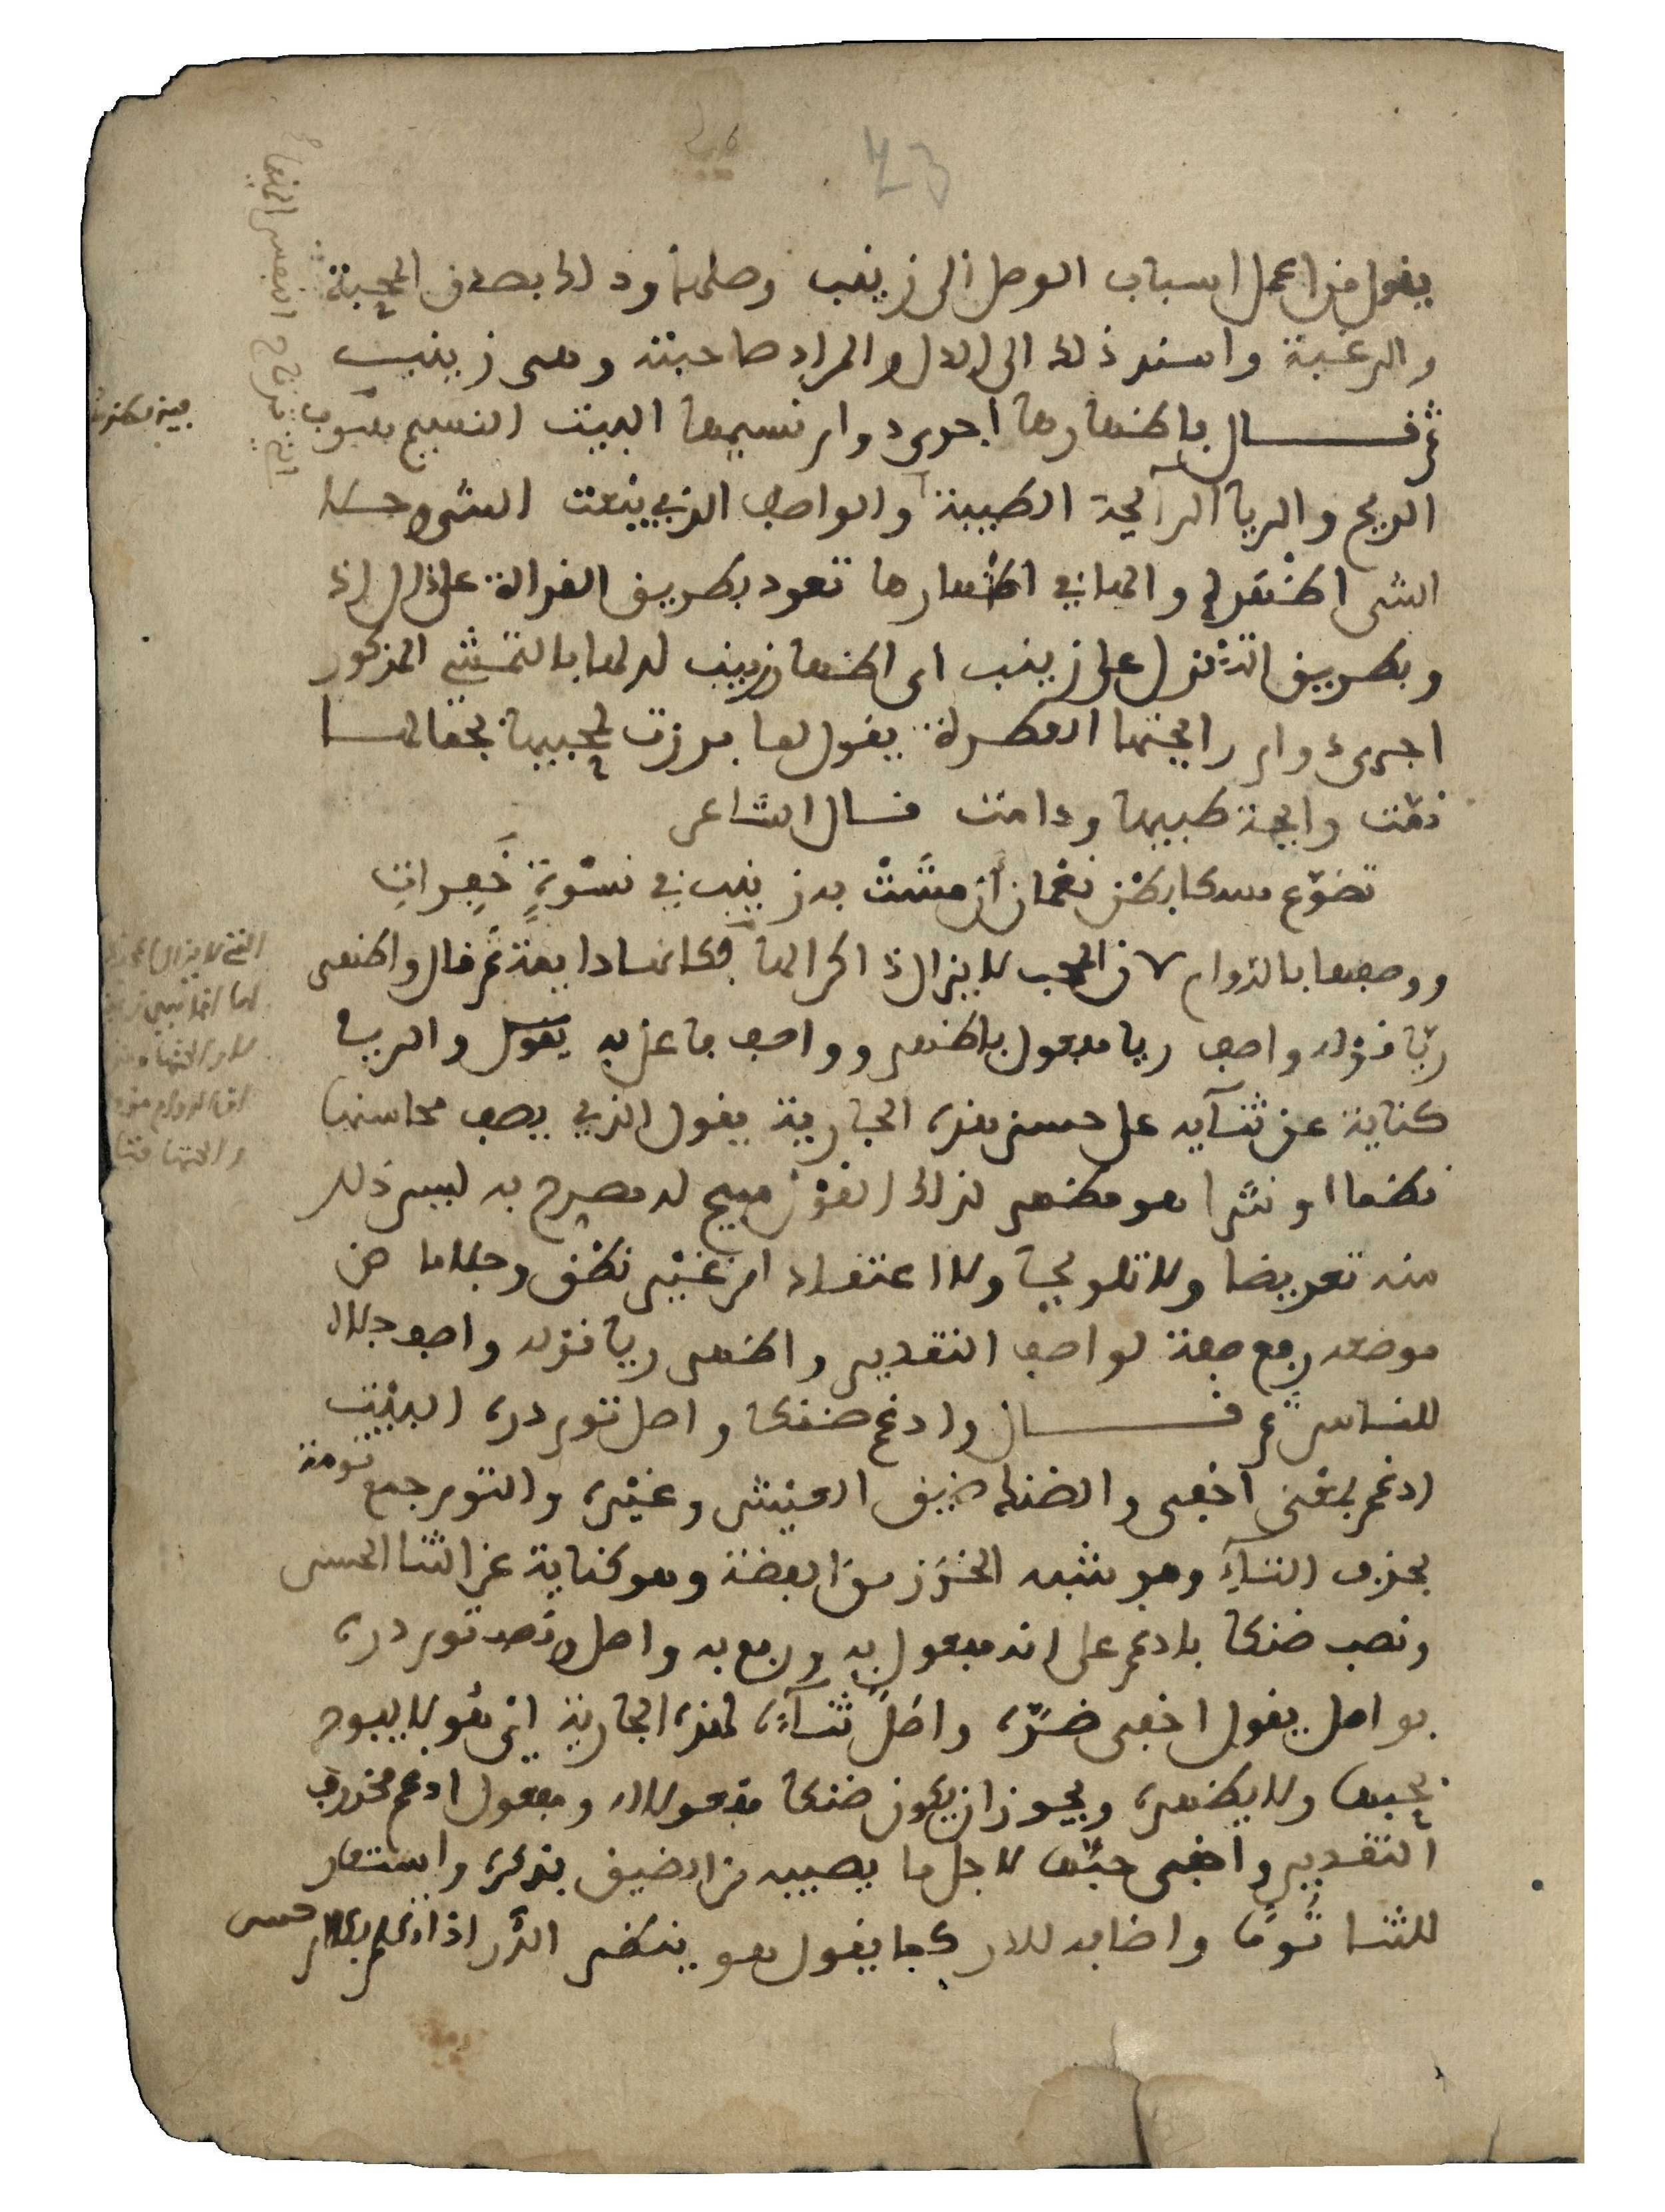 23
يقول من اعمل اسباب الوصل الى زينب وصلها وذلك بصدق المحبة
والرغبة واسند ذلك الى الدل والمراد صاحبته وهي زينب
ثم قال باظهارها اجرى دوام نسيمها البيت النسيم هبوب
الريح والريا الرائحة الطيبة والواصف الذي ينعت الشيء
الشي اظهره والها في اظهارها تعود بطريق القرالة على الدل
وبطريق التنزل على زينب اى اظهار زينب لدلها بالتمشي المذكور
اجرى دوام رائحتها العطرة يقول لما برزت لمحبيها بجمالها
نمّت رايحة طيبها ودامت قال الشاعر
تضوّع مسكا بطن نعمان أن مشت به زينب في نسوة خفرات
ووصفها بالدوام لان المحب لا يزال ذاكرا لها فكانها دايمة ثم قال واظهر
ريّا قوله واصف ريا مفعول باظهر وواصف فاعل به يقول والريا
كناية عن ثنآيه على حسن هذه الجارية يقول الذي يصف محاسنها
نظما او نثرا هو مظهر لذلك القول مبيح له مصرح به ليس ذلك
منه تعريضا ولا تلويحا ولا اعتقادا من غير نطق وجلاما من
موضعه رفع صفة لواصف التقدير واظهر ريا قوله واصف جلا
للناس ثم قال وادغم ضنكا واصل توم دره البيت
ادغم بمعنى اخفى والضنك ضيق العيش وغيره والتوم جمع تومة
بحذف التاء وهو شبه الخرز من الفضة وهو كناية عن الثنا الحسن
ونصب ضنكا بادغم على انه مفعول به ورفع به واصل ونصب توم دره
بواصل يقول اخفى ضرّه واصل ثنآءه لهذه الجارية اى هو لا يبوح
بحبها ولا يظهره ويجوز ان يكون ضنكا مفعولا له ومفعول ادغم محذوف
التقدير واخفى حبّها لاجل ما يصيبه من الضيق بذكره واستعار
للثنا تُومًا واضافه للدر كما يقول هو ينظم الدّر اذا تكلم بكلام حسن